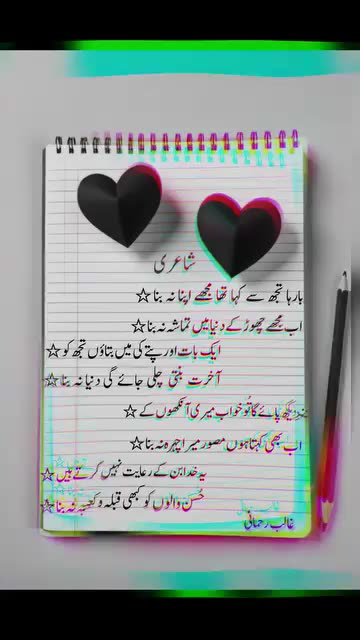 شاعری
بارہا تجھ سے کہا تھا مجھے اپنا نہ بنا☆
اب مجھے چھوڑ کے دنیا میں تماشہ نہ بنا☆
ایک بات اور پتے کی میں بتاؤں تجھ کو☆
آخرت بنتی چلی جائے گی دنیا نہ بنا☆
دیکھ پائے گا تُو خواب میری آنکھوں کے☆
اب بھی کہتا ہوں مصور میرا چہرہ نہ بنا☆
یہ خدا بن کے رعایت نہیں کرتے ہیں☆
حُسن والوں کو کبھی قبلہ و کعبہ نہ بنا☆
غالب رحمانی